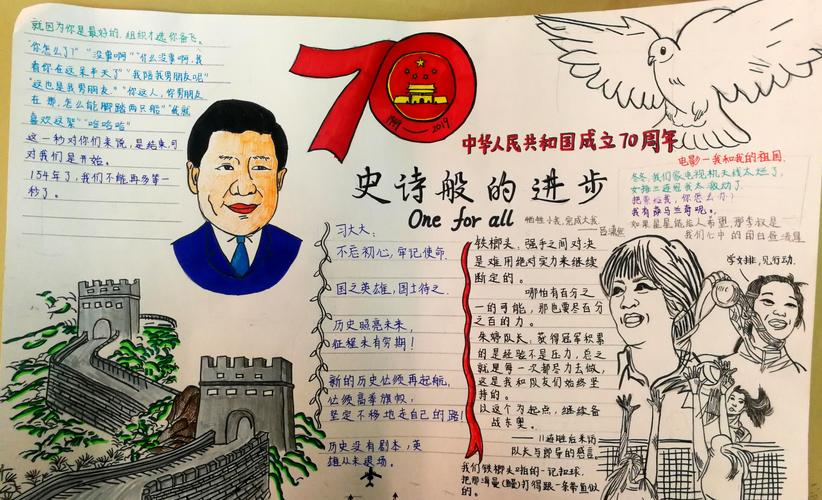 就因为你是最好的,组织才选你奋飞。
"你怎么了?""没事啊""什么没事啊,我
看你在这呆半天了""我陪我男朋友呢"
"这也是我男朋友。""你这人,你男朋友
在那,怎么能脚踏两只船""我就
喜欢这架""哈哈哈"
这一秒对你们来说,是结束,可
对我们是开始。
154年了,我们不能再多等一
秒了。
70
1949—2019
中华人民共和国成立70周年
史诗般的进步
One for all
牺牲小我,完成大我。
电影—我和我的祖国
冬冬,我们家电视机天线太烂了,
女排三连冠我太激动了
你怎么办)
学女排,见行动.
习大大:
不忘初心,牢记使命.
国之英雄,国士待之.
历史照亮未来,
征程未有穷期!
新的历史伫倾再起航,
伫倾高举旗帜,
坚定不移地走自己的路!
历史没有剧本,英
雄从未退场。
铁榔头,强手之间对决
是难用绝对实力来继续
断定的。
哪怕有百分之
一的可能,那也要尽百分
之百的力。
朱婷队长,获得冠军积累
的是经验不是压力,总之
就是每一次都尽力去做,
这是我和队友们始终坚
持的。
以这个为起点,继续备
战东奥。
——11连胜后采访
队长与郎导的感言.
我们铁榔头啪的一记扣球.
的。